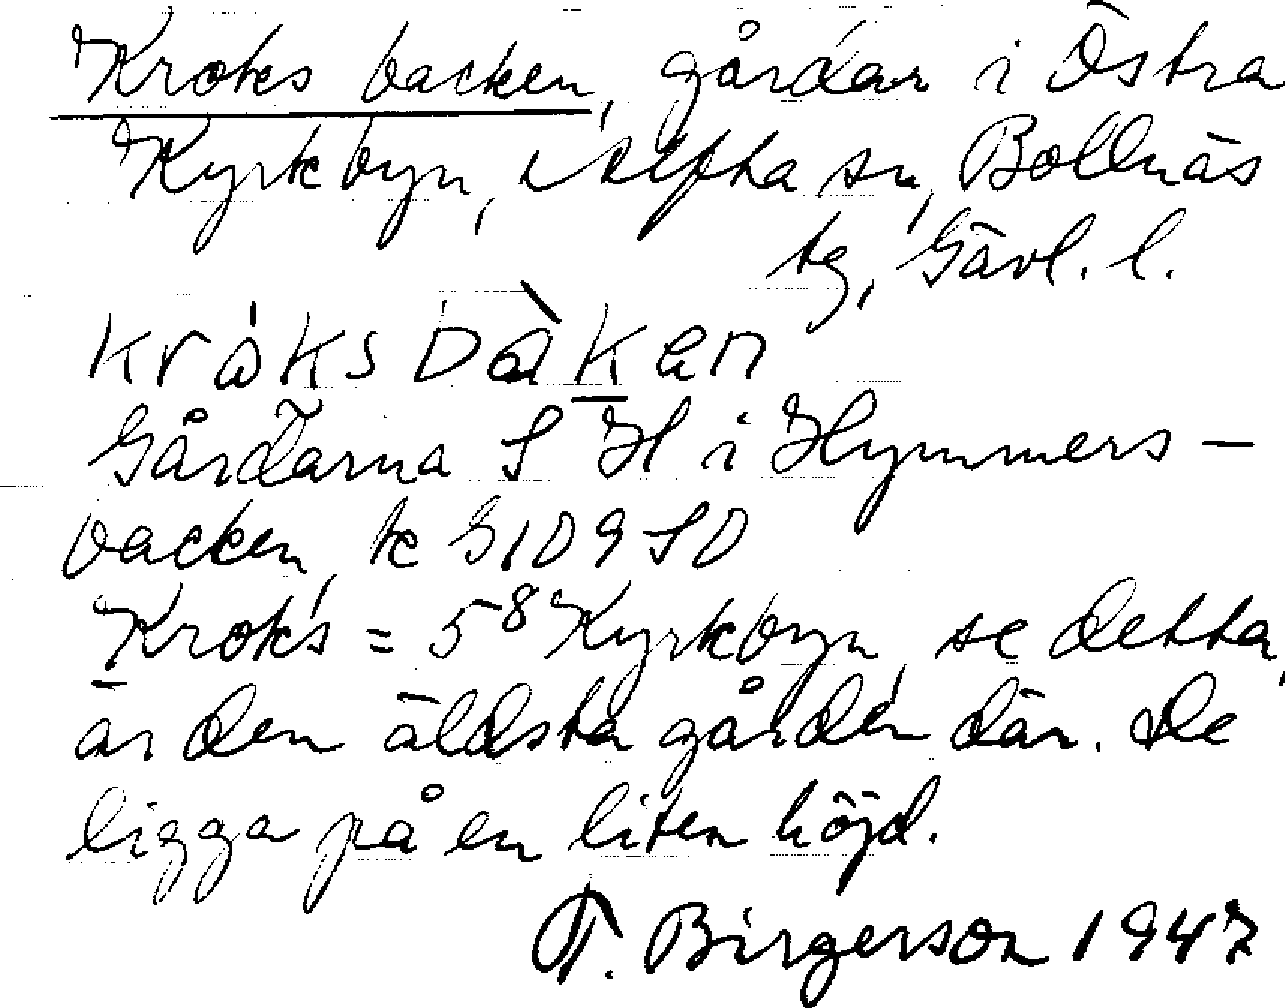 Kroks backen, gårdar i Östra
Kyrkbyn, Alfta sn, Bollnäs
tg, Gävl. l.
kråksbàken
Gårdarna S H i Hymmers-
backen, k G 109 SO
Kroks = 5⁸ Kyrkbyn, se detta,
är den äldsta gården där. De
ligga på en liten höjd.
T. Birgerson 1947